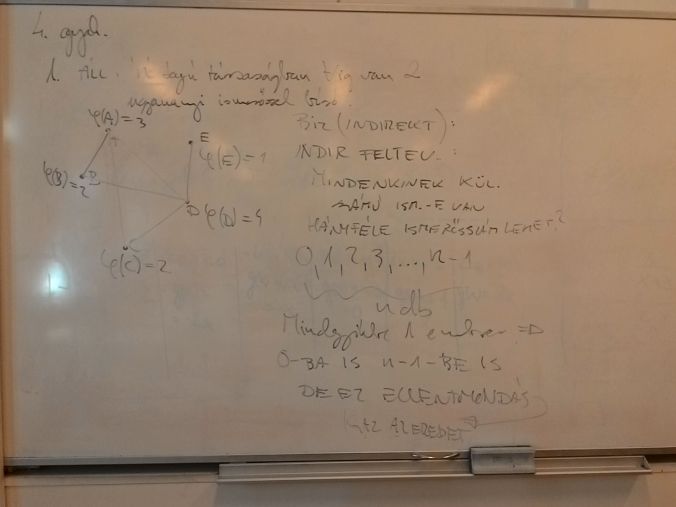 4. gyak.
1. Áll. tagú társaságban mindig van 2
ugyanannyi ismerőssel bíró.
φ(A)=3
A
E
φ(E)=1
φ(B)=2
B
D
φ(D)=4
C
φ(C)=2
BIZ (INDIREKT):
INDIR FELTEV.:
MINDENKINEK KÜL.
SZÁMÚ ISM.-E VAN
HÁNYFÉLE ISMERŐSSZÁM LEHET?
0,1,2,3,...,n-1
n db
Mindegyikbe 1 ember ⇒
0-BA IS n-1-BE IS
DE EZ ELLENTMONDÁS
IGAZ AZ EREDETI